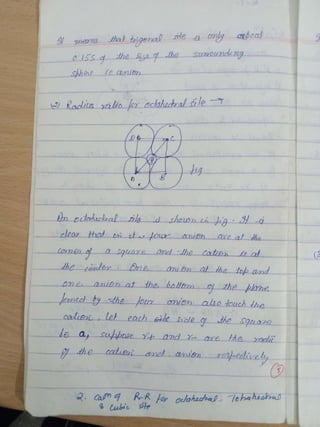 It means that trigonal site is only about
0.155 of the size of the surrounding
sphere i.e anion
Radius ratio for octahedral site →
D
C
A
B
fig
An octahedral site is shown in fig. It is
clear that in it four anion are at the
corner of a square and the cation is at
the center. One anion at the top and
one anion at the bottom of the plane
formed by the four anion also touch the
cation. let each side of the square
is a, suppose r+ and r- are the radii
of the cation and anion respectively
3
2. can of R.R for octahedral, Tetrahedral
& Cubic site